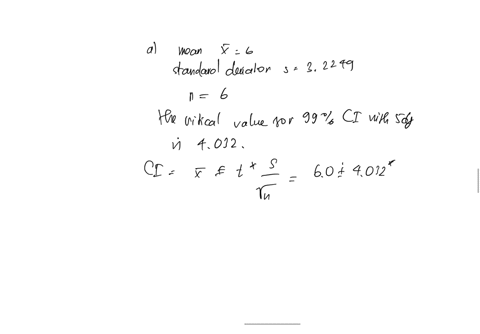 a) mean x̄ = 6
standard deviation s = 3.2249
n = 6
the critical value for 99% CI with 5df
is 4.032.
CI = x̄ ± t* s/√n = 6.0 ± 4.032*